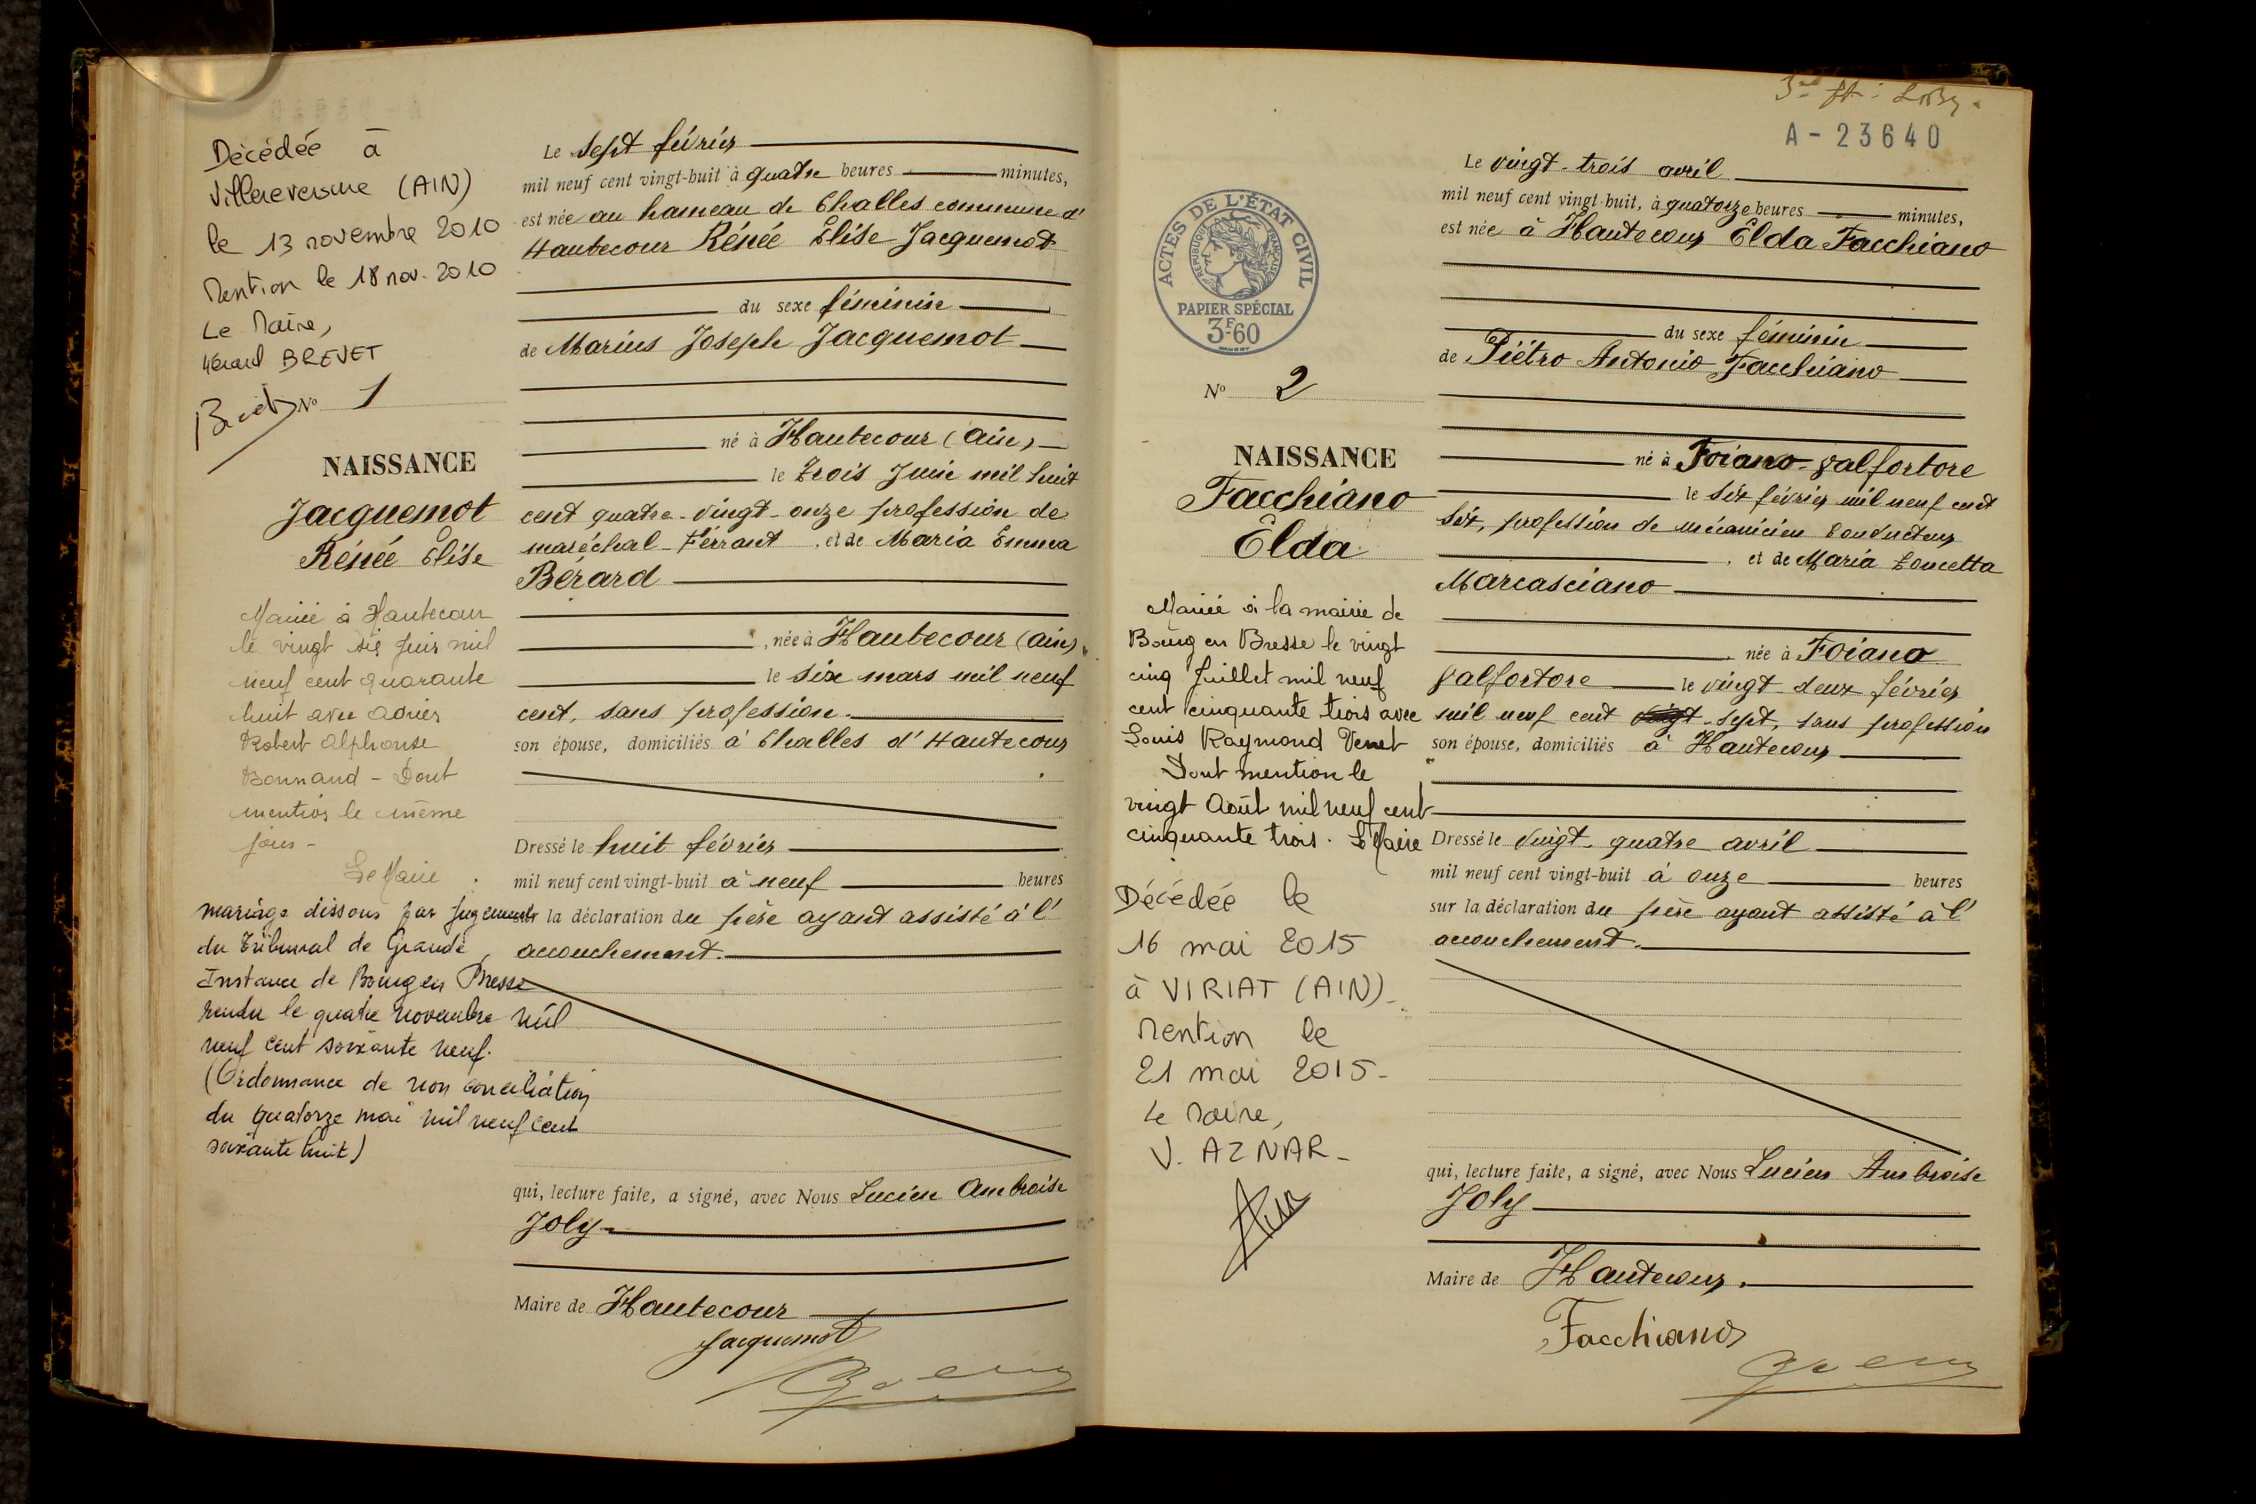 Décédée à
Villereversure (AIN)
le 13 novembre 2010
Mention le 18 nov. 2010
Le Maire,
Gérard BREVET
No 1
NAISSANCE
Jacquemot
Rénée Elise
Mariée à Hautecour
le vingt six juin mil
neuf cent quarante
huit avec
Robert Alphonse
Bonnand - Dont
mention le même
jour -
Le Maire
mariage dissous par jugement
du Tribunal de Grande
Instance de Bourg en Bresse
rendu le quatre novembre mil
neuf cent soixante neuf.
(Ordonnance de non conciliation
du quatorze mai mil neuf cent
soixante huit)
Le sept février
mil neuf cent vingt-huit à quatre heures minutes,
est née au hameau de Challes commune d'
Hautecour Rénée Elise Jacquemot
du sexe féminin
de Marius Joseph Jacquemot
né à Hautecour (Ain)
le trois Juin mil huit
cent quatre-vingt-onze profession de
maréchal-Ferrant, et de Maria Emma
Bérard
, née à Hautecour (Ain),
le six mars mil neuf
cent, sans profession.
son épouse, domiciliés à Challes d'Hautecour
Dressé le huit février
mil neuf cent vingt-huit à neuf heures
sur la déclaration du père ayant assisté à l'
accouchement.
qui, lecture faite, a signé, avec Nous Lucien Ambroise
Joly
Maire de Hautecour
Jacquemot
A-23640
ACTES DE L'ÉTAT CIVIL
RÉPUBLIQUE FRANÇAISE
PAPIER SPÉCIAL
3F60
No 2
NAISSANCE
Facchiano
Elda
Mariée à la mairie de
Bourg en Bresse le vingt
cinq Juillet mil neuf
cent cinquante trois avec
Louis Raymond Venet
Dont mention le
vingt Août mil neuf cent
cinquante trois. Le Maire
Décédée le
16 mai 2015
à VIRIAT (AIN)_
Mention le
21 mai 2015-
Le Maire,
V. AZNAR_
Le vingt-trois avril
mil neuf cent vingt-huit, à quatorze heures minutes,
est née à Hautecour Elda Facchiano
du sexe féminin
de Piétro Antonio Facchiano
né à Foiano-Valfortore
le six février mil neuf cent
six, profession de mécanicien conducteur
, et de Maria Concetta
Marcasciano
, née à Foiano
Valfortore le vingt-deux février
mil neuf cent vingt-sept, sans profession
son épouse, domiciliés à Hautecour
Dressé le vingt-quatre avril
mil neuf cent vingt-huit à onze heures
sur la déclaration du père ayant assisté à l'
accouchement.
qui, lecture faite, a signé, avec Nous Lucien Ambroise
Joly
Maire de Hautecour.
Facchiano